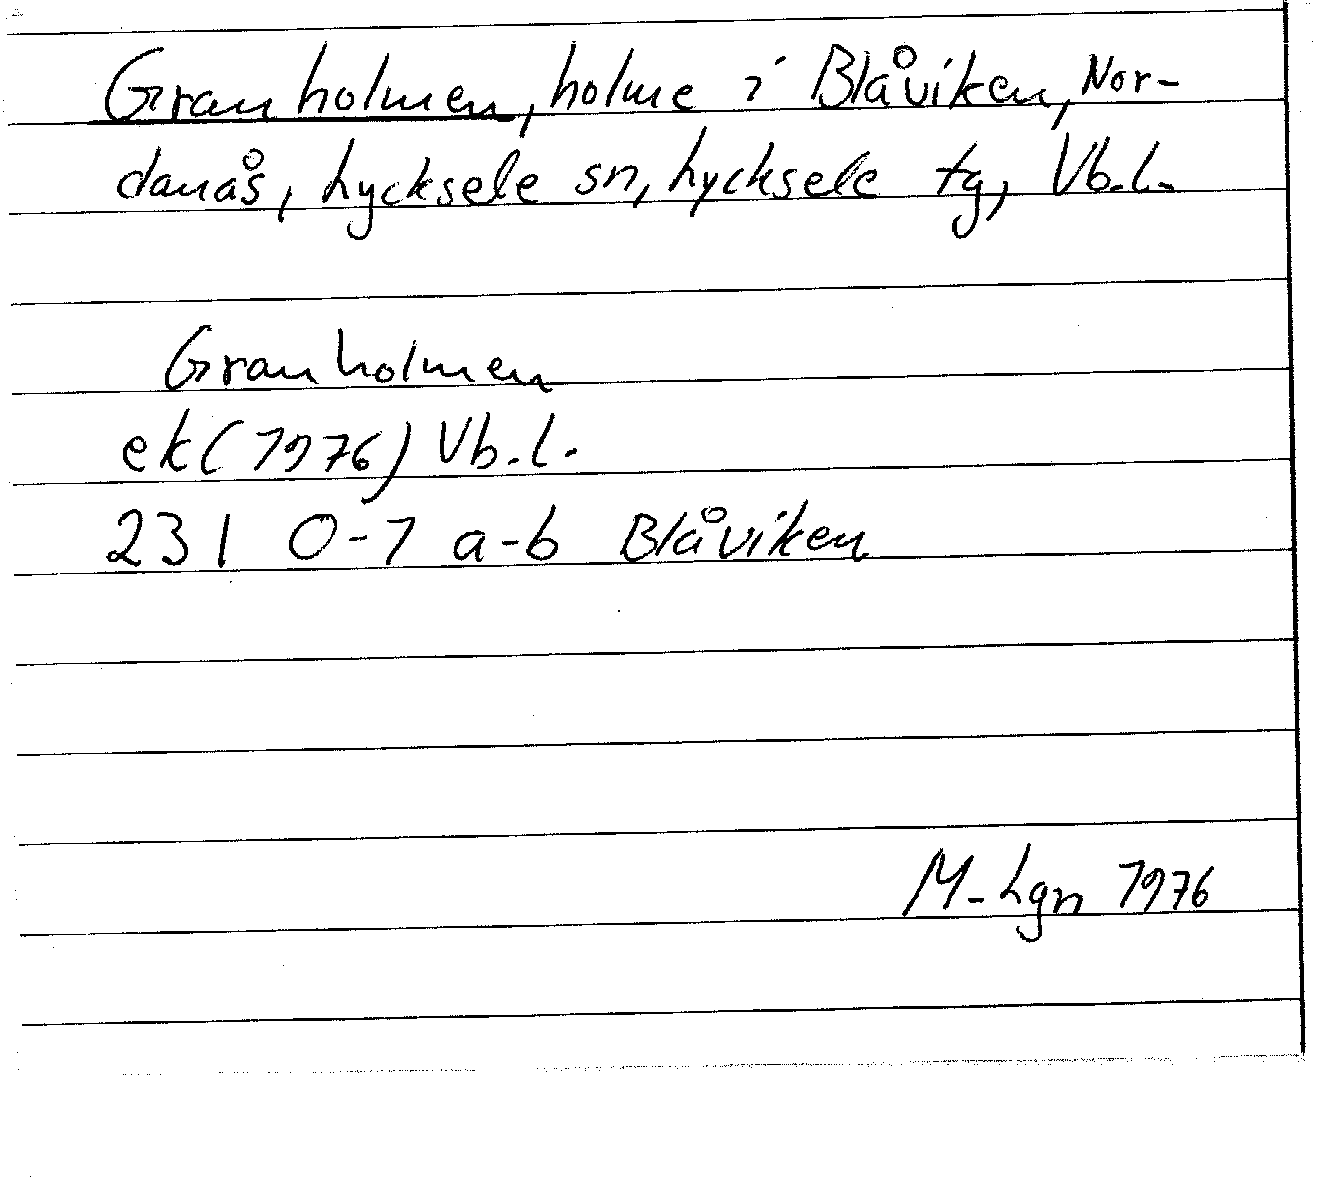 Granholmen, holme i Blåviken, Nor-
danås, Lycksele sn, Lycksele tg, Vb.l.
Granholmen
ek (1976) Vb.l.
23 I 0-1 a-b Blåviken
M-Lgn 1976